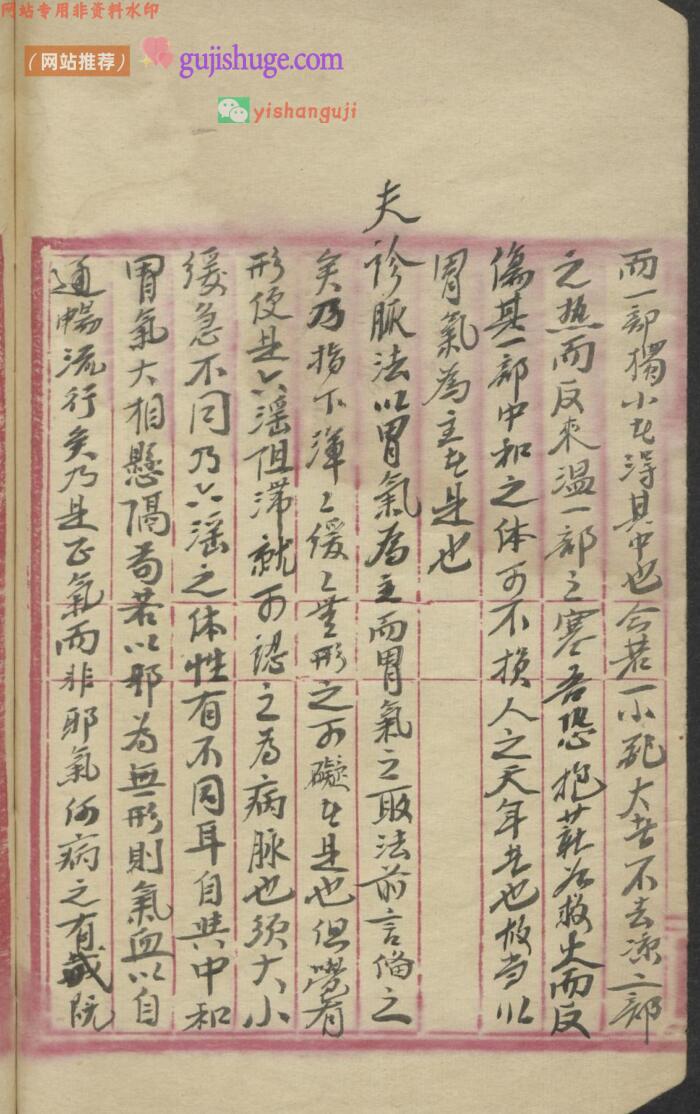 网站专用非资料水印
（网站推荐）
gujishuge.com
yishanguji
而一部獨小尤淂其中也今若一小配大者不去凉二部
之热而反來温一部之寒吾恐抱薪為救火而反
傷其一部中和之体可不损人之天年者也故当以
胃氣為主者是也
夫診脈法以胃氣為主而胃氣之取法前言俻之
矣乃指下渾〻缓〻無形之可礙者是也但覺有
形便是六滛阻滞就可認之為病脉也须大小
缓急不同乃六滛之体性有不同耳自與中和
胃氣大相懸隔苟若以邪為無形則氣血以自
通暢流行矣乃是正氣而非邪氣何病之有哉既